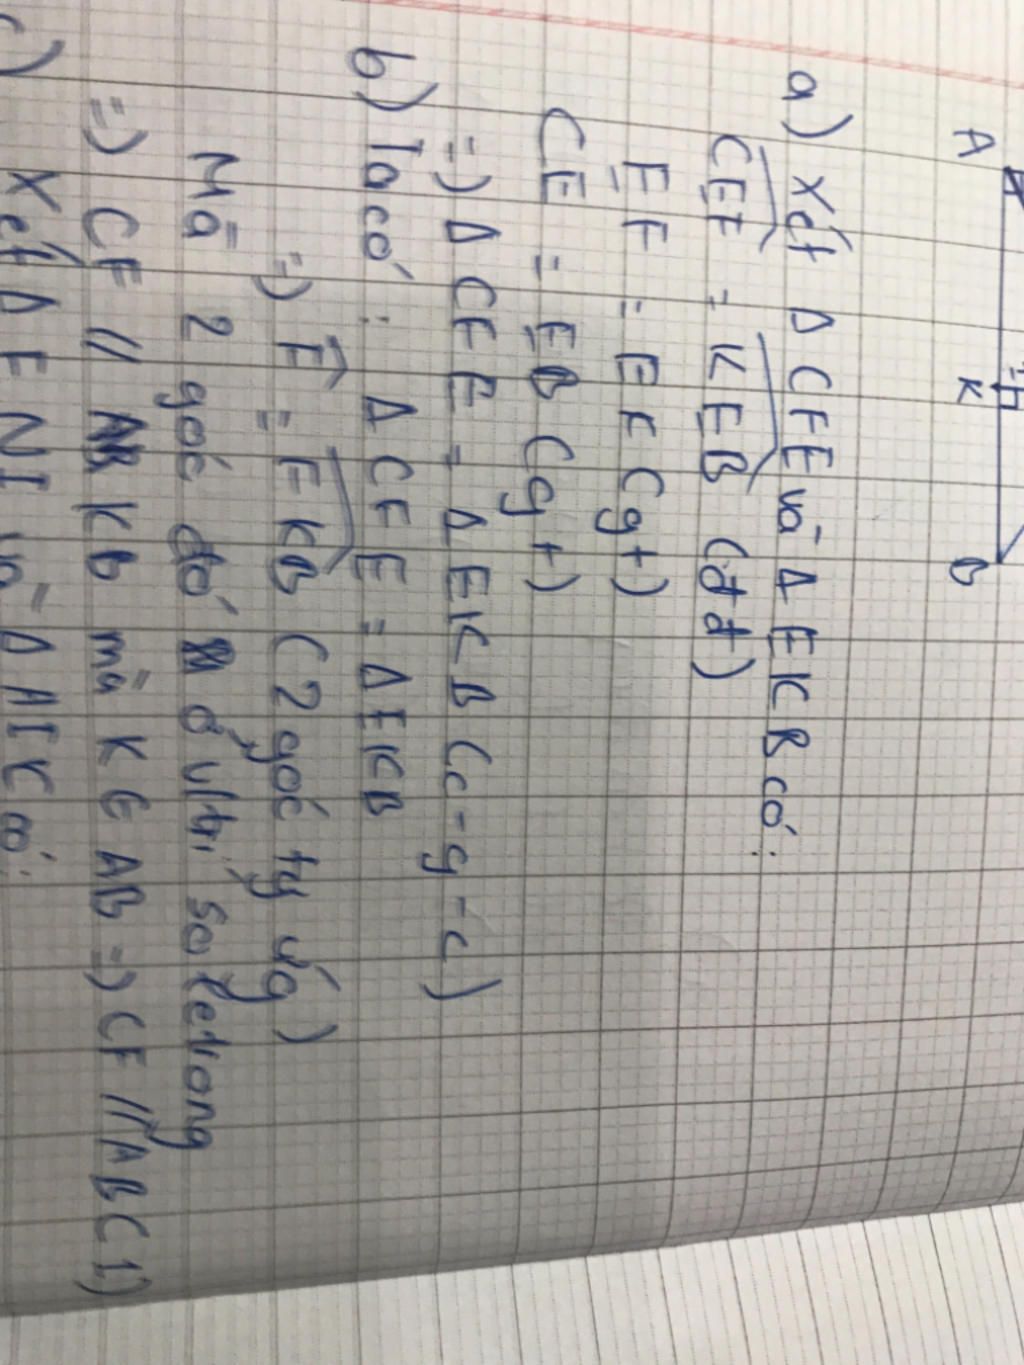 A K B
a) Xét Δ CFE và Δ EKB có:
CEF = KEB (đđ)
EF = EK (gt)
CE = EB (gt)
=) Δ CFE = Δ EKB (c-g-c)
b) Ta có: Δ CFE = Δ EKB
=) F = EKB (2 góc tự ứg)
Mà 2 góc đó ở vtrí so le trong
=) CF // KB mà K ∈ AB =) CF // AB (1)
c) Xét Δ ENI và Δ AIK có: